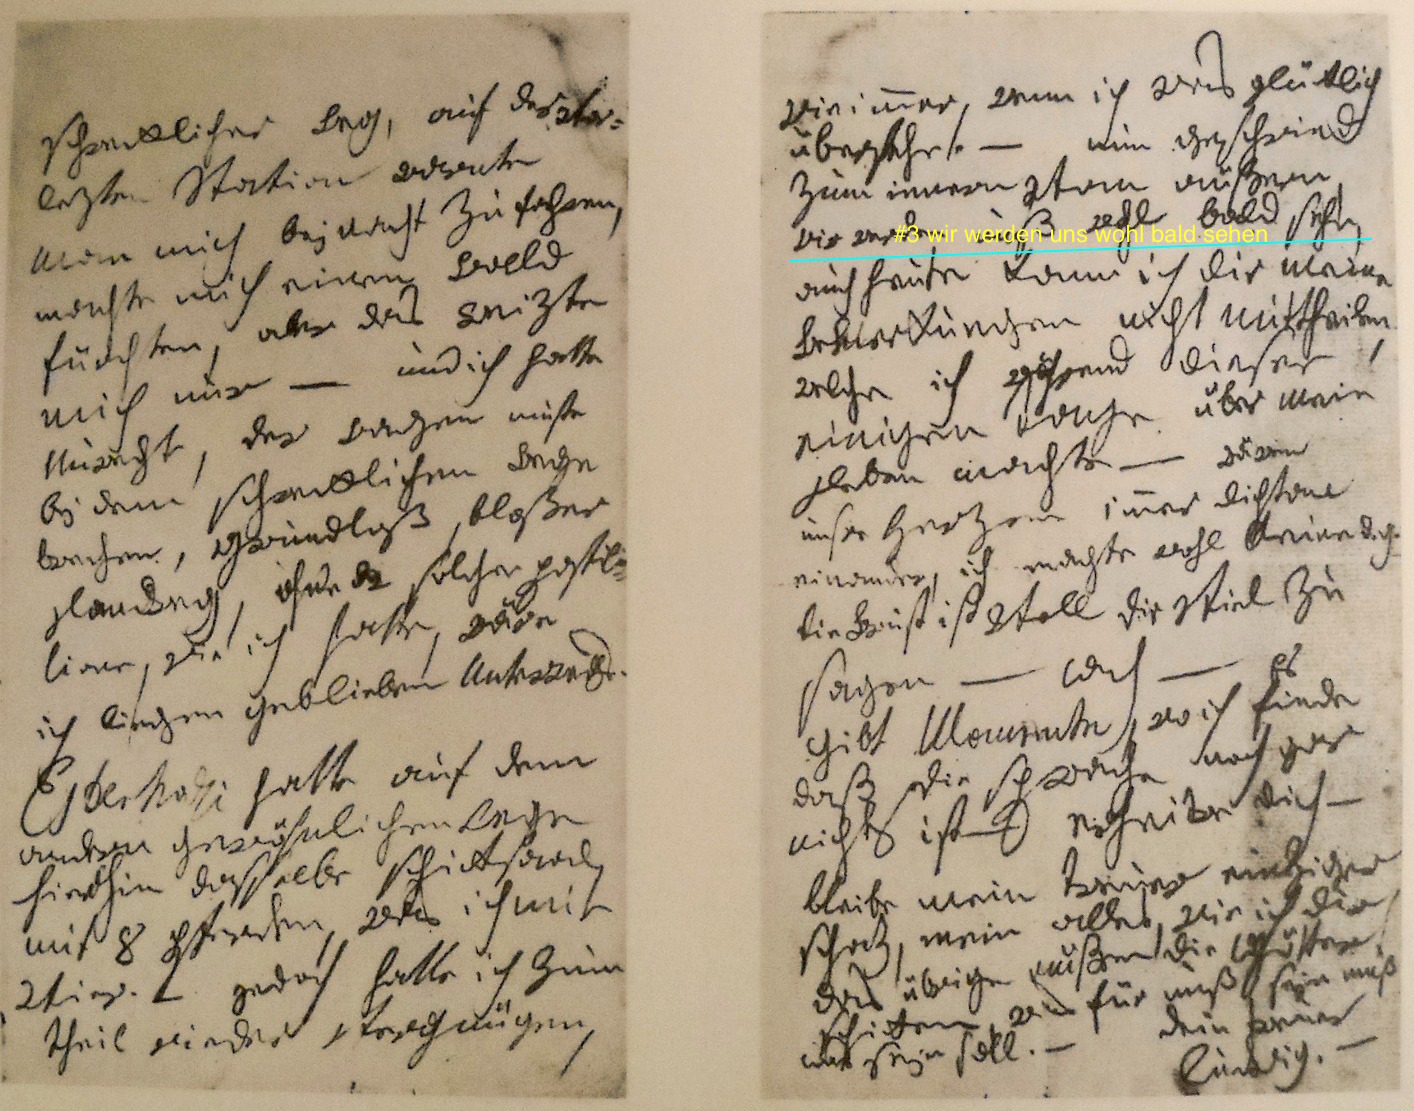 schrecklicher Weg, auf der vor=
letzten Station warnte
man mich bej nacht zu fahren,
machte mich einen Wald
fürchten, aber das Reizte
mich nur — und ich hatte
Unrecht, der Wagen muste
bej dem schrecklichen Wege
brechen, grundloß, bloßer
Landweg, ohne solche Postil=
lione, wie ich hatte, wäre
ich liegen geblieben Unterwegs.
Esterhazi hatte auf dem
andern gewöhnlichen Wege
hierhin dasselbe schicksaal
mit 8 Pferden, was ich mit
vier. — jedoch hatte ich zum
theil wieder Vergnügen,
wie immer, wenn ich was glücklich
überstehe. — nun geschwind
zum innern vom aüßern,
wir werden unß wohl bald sehn,
#3 wir werden uns wohl bald sehen
auch heute kann ich dir meine
Bemerkungen nicht mittheilen,
welche ich während dieser
einigen Tage über mein
Leben machte — wären
unsre Herzen immer dicht an
einander, ich machte wohl keine d.g.
die Brust ist voll dir viel zu
sagen — Ach — es
gibt Momente, wo ich finde
daß die sprache noch gar
nichts ist — erheitre dich —
bleibe mein treuer einziger
schaz, mein alles, wie ich dir
das übrige müßen die Götter
schicken, was für unß sein muß
und sein soll. — dein treuer
ludwig. —